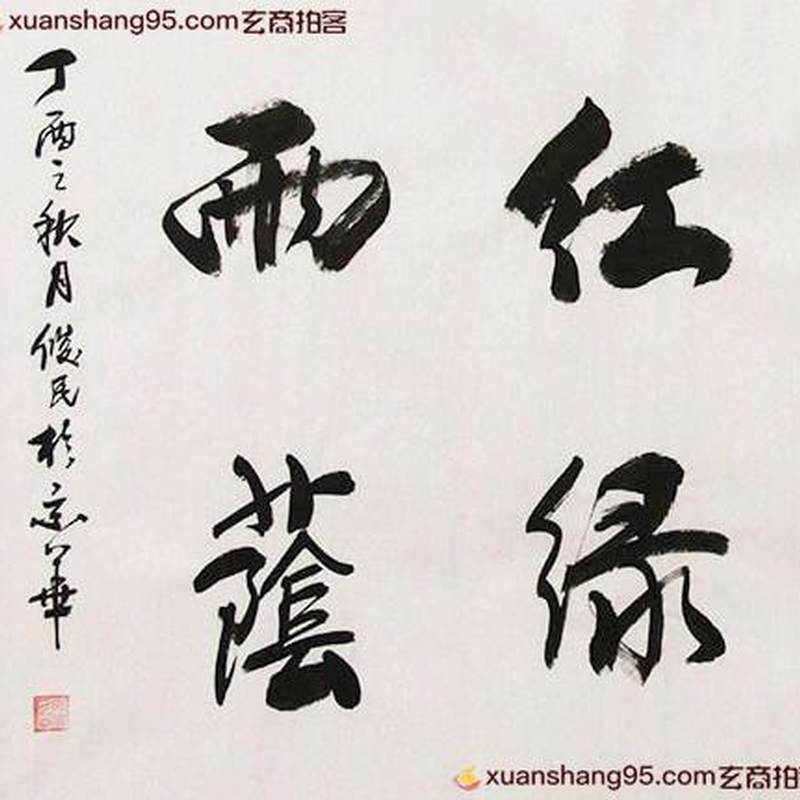 xuanshang95.com玄商拍客
红绿
雨蔭
丁酉之秋月俊民於京華
xuanshang95.com玄商拍